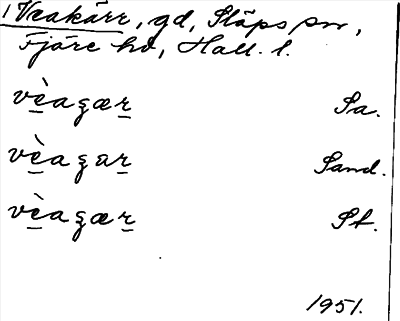 Veakärr, gd, Släps sn,
Fjäre hd, Hall. l.
vè̱aʒær̲ Sa.
vè̱aʒar̲ Sand.
vè̱aʒær̲ St.
1951.